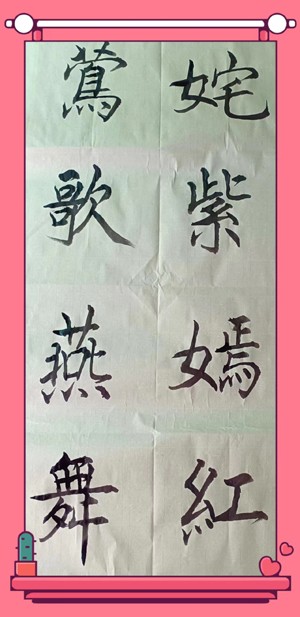 姹紫嫣紅
鶯歌燕舞